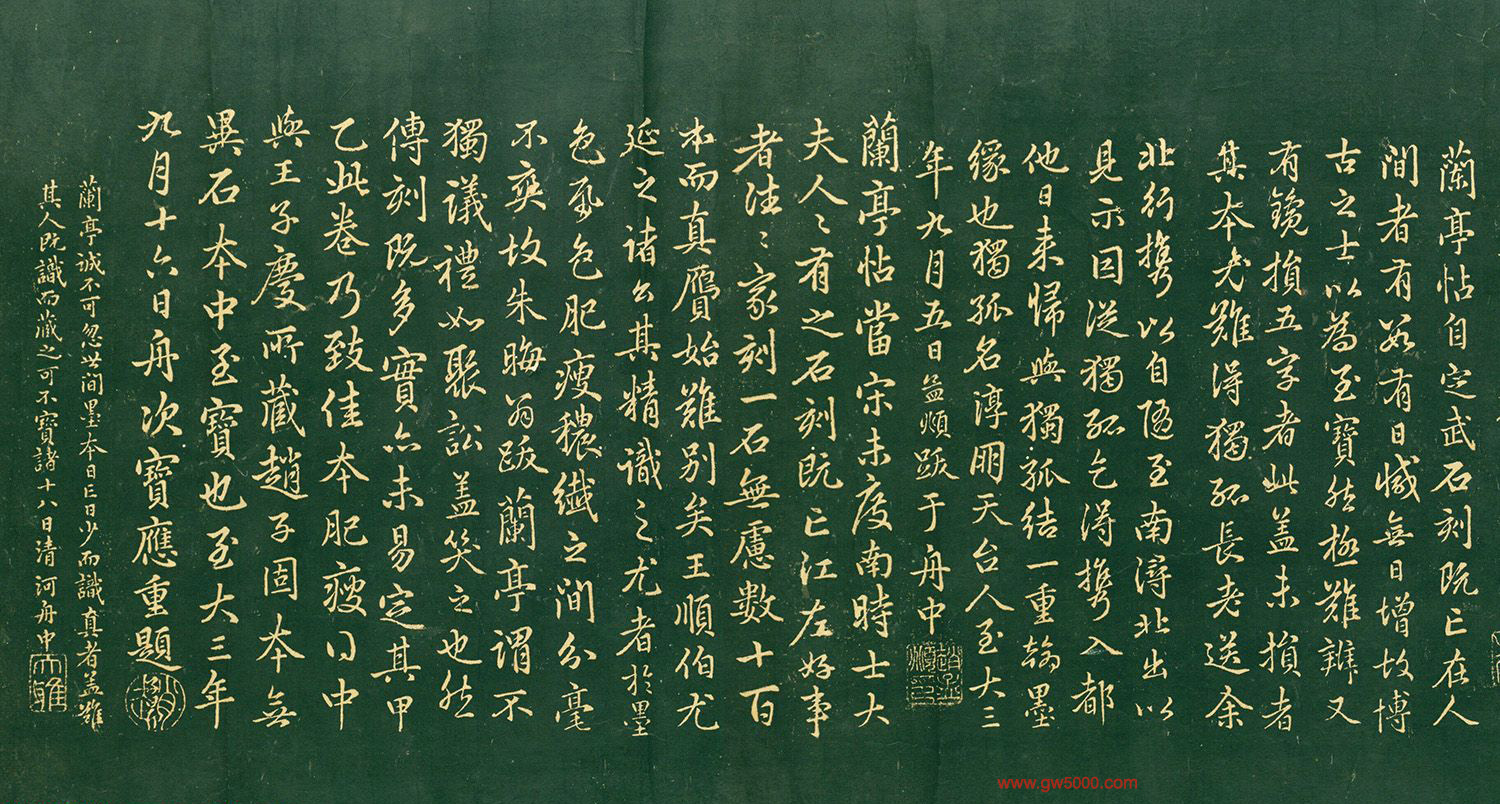 蘭亭帖自定武石刻既亡在人
間者有數有日減無日增故博
古之士以為至寶然極難辨又
有鑱損五字者此盖未損者
其本尤難得獨孤長老送余
北行攜以自隨至南潯北出以
見示因從獨孤乞得攜入都
他日來歸與獨孤結一重翰墨
緣也獨孤名淳朋天台人至大三
年九月五日孟頫跋于舟中
趙孟頫印
蘭亭帖當宋未度南時士大
夫人〻有之石刻既亡江左好事
者往〻家刻一石無慮數十百
本而真贗始難別矣王順伯尤
延之諸公其精識之尤者於墨
色帋色肥瘦穠纖之間分毫
不爽故朱晦翁跋蘭亭謂不
獨議禮如聚訟盖笑之也然
傳刻既多實亦未易定其甲
乙此卷乃致佳本肥瘦得中
與王子慶所藏趙子固本無
異石本中至寶也至大三年
九月十六日舟次寶應重題
蘭亭誠不可忽世間墨本日亡日少而識真者盖難
其人既識而藏之可不寶諸十八日清河舟中
大雅
www.gw5000.com